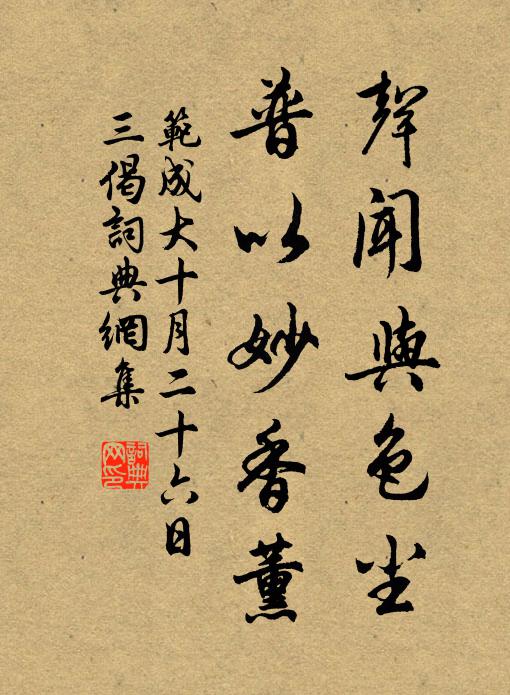 聲聞與色尘
普以妙香薰
範成大十月二十六日
三偈詞典網集
詞典
网印